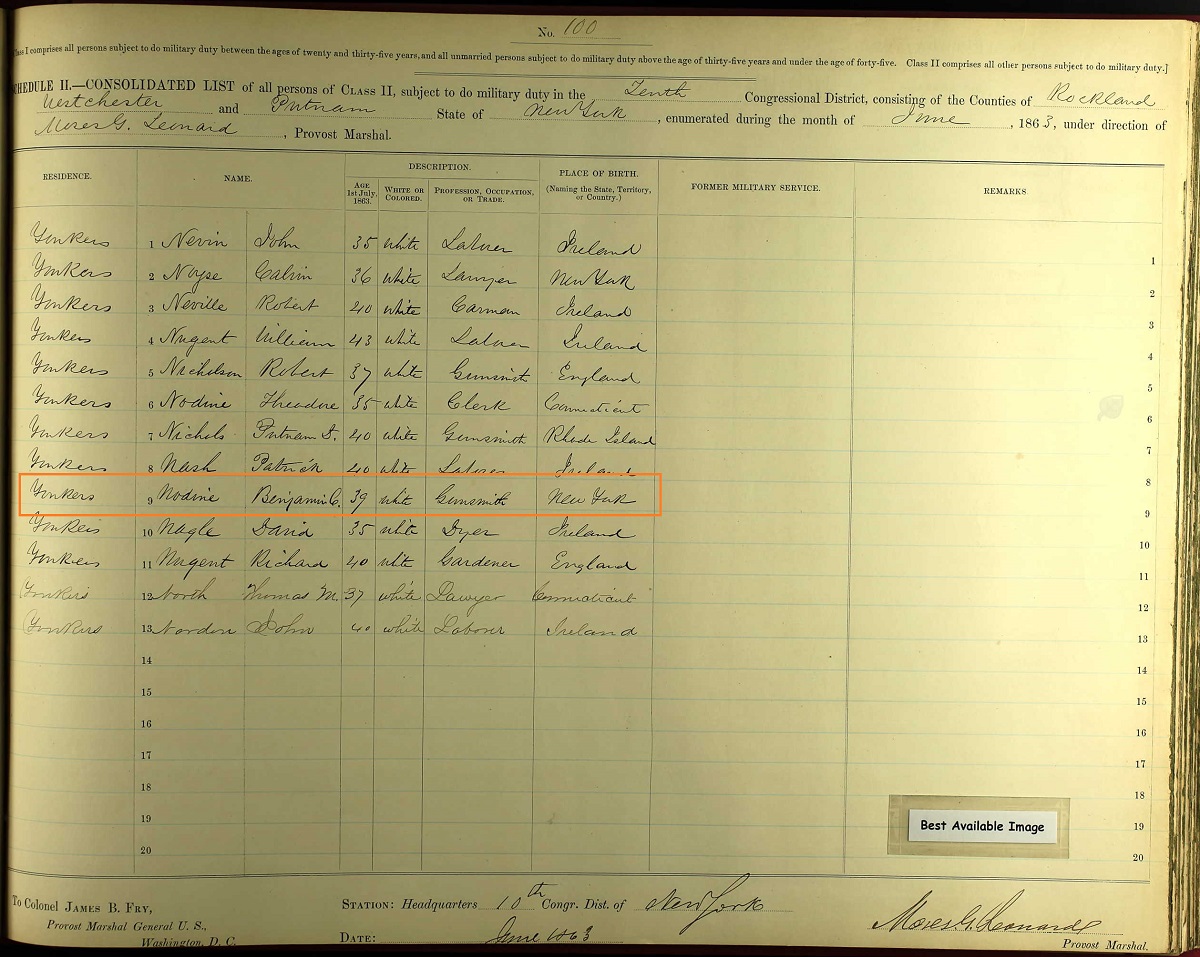 No. 100
Class I comprises all persons subject to do military duty between the ages of twenty and thirty-five years, and all unmarried persons subject to do military duty above the age of thirty-five years and under the age of forty-five. Class II comprises all other persons subject to do military duty.]
SCHEDULE II.—CONSOLIDATED LIST of all persons of CLASS II, subject to do military duty in the Tenth Congressional District, consisting of the Counties of Rockland
Westchester and Putnam State of New York, enumerated during the month of June, 1863, under direction of
Moses G. Leonard, Provost Marshal.
RESIDENCE. NAME. DESCRIPTION. PLACE OF BIRTH. FORMER MILITARY SERVICE. REMARKS
AGE 1st July, 1863. WHITE OR COLORED. PROFESSION, OCCUPATION, OR TRADE. (Naming the State, Territory, or Country.)
Yonkers 1 Nevin John 35 white Laborer Ireland 1
Yonkers 2 Noyse Calvin 36 white Lawyer New York 2
Yonkers 3 Neville Robert 40 white Carman Ireland 3
Yonkers 4 Nugent William 43 white Laborer Ireland 4
Yonkers 5 Nicholson Robert 37 white Gunsmith England 5
Yonkers 6 Nodine Theodore 35 white Clerk Connecticut 6
Yonkers 7 Nichols Putnam 40 white Gunsmith Rhode Island 7
Yonkers 8 Nash Patrick 40 white Laborer Ireland 8
Yonkers 9 Nodine Benjamin C. 39 white Gunsmith New York 9
Yonkers 10 Nagle David 35 white Dyer Ireland 10
Yonkers 11 Nugent Richard 40 white Gardener England 11
Yonkers 12 North Thomas M. 37 white Lawyer Connecticut 12
Yonkers 13 Nordon John 40 white Laborer Ireland 13
14 14
15 15
16 16
17 17
18 18
19 19
20 20
Best Available Image
To Colonel JAMES B. FRY,
Provost Marshal General U. S.,
Washington, D. C.
STATION: Headquarters 10th Congr. Dist. of New York
DATE: June 1863
Moses G. Leonard
Provost Marshal.